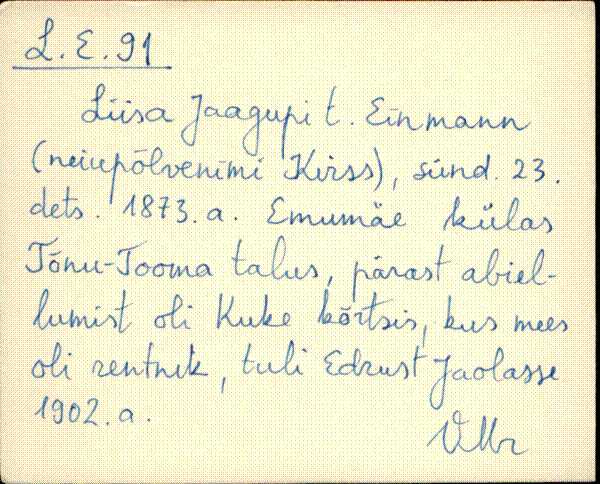 L. E. 91
Liisa Jaagupi t. Einmann
(neiupõlvenimi Kirss), sünd. 23.
dets. 1873. a. Emumäe külas
Tõnu-Tooma talus, pärast abiel-
lumist oli Kuke kõrtsis, kus mees
oli rentnik, tuli Edrust Jaolasse
1902. a.